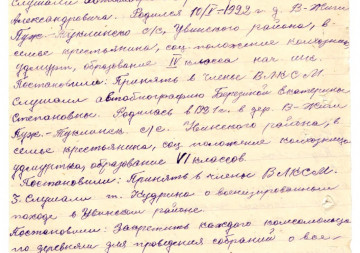 Слушали автобиог
Александровича. Родился 10/V-1922 г д. В-Жик
Нуж.-Туклинского с/с. Увинского района, в
семье крестьянина, соц. положение колхозник
удмурт, образование IV класса нач. шк.
Постановили: Принять в члены ВЛКСМ.
Слушали автобиографию Березиной Екатерины
Степановны. Родилась в 1921 г. в дер. В-Жик
с/с. Увинского района, в
семье крестьянина, соц. положение колхозница
удмуртка, образование VI классов.
Постановили: Принять в члены ВЛКСМ.
3. Слушали т. Кудрина о военизированном
походе в Увинском районе.
Постановили: Закрепить каждого комсомольца
по деревням для проведения собраний о вое-